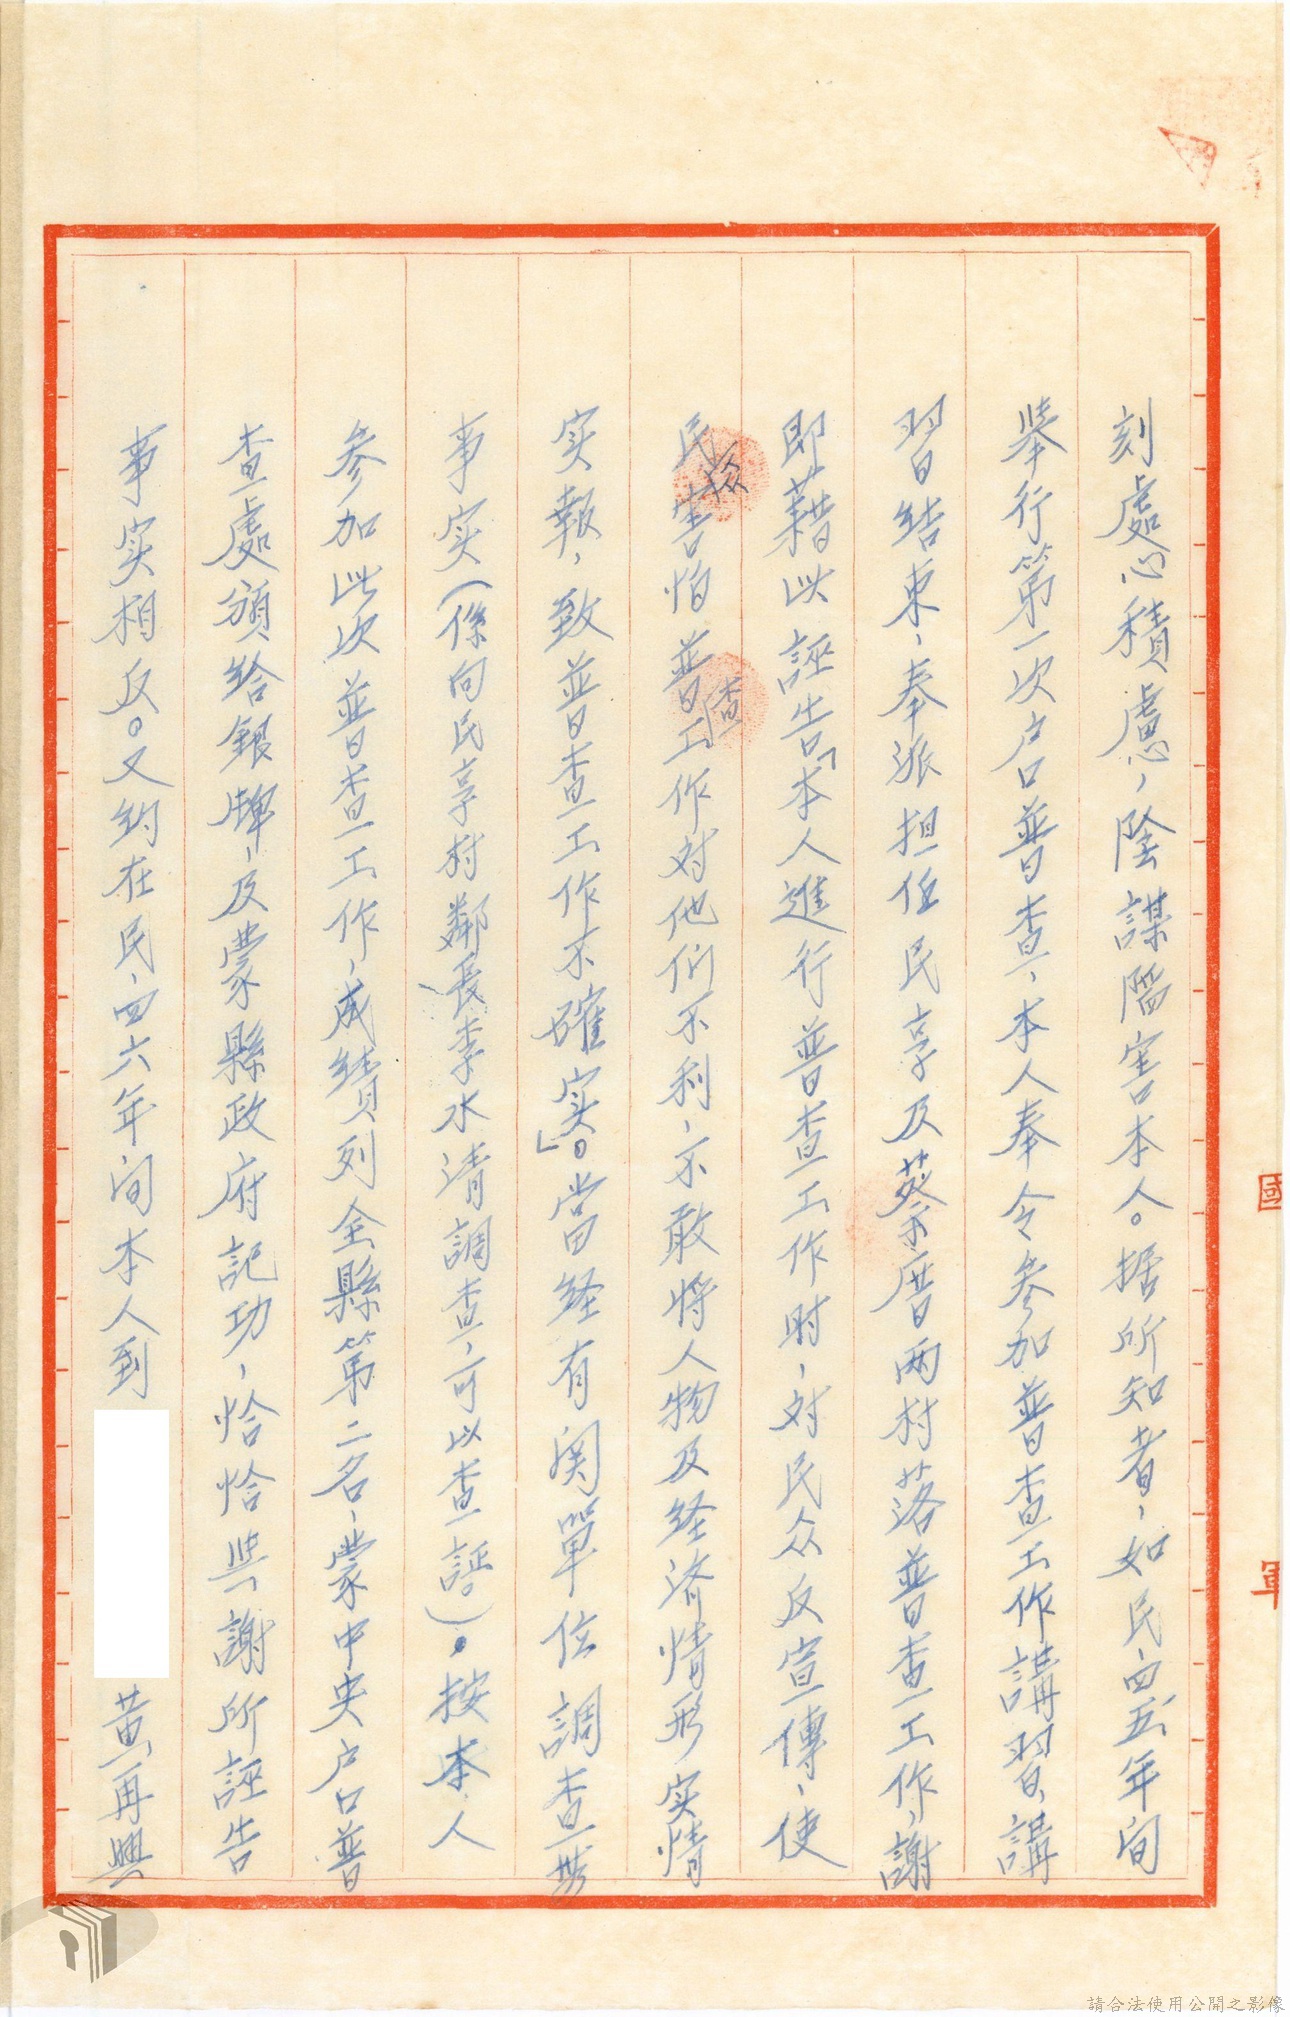 刻處心積慮，陰謀陷害本人。据所知者，如民、四五年间
举行第一次户口普查，本人奉令参加普查工作講習，講
習结束，奉派担任民享及蔡厝两村落普查工作，謝
即藉此誣告「本人進行普查工作时，对民众反宣傳，使
民众害怕普查工作对他们不利，不敢将人物及経济情形实情
实報，致普查工作不確实」。當経有関單位調查無
事实（係向民享村鄰長李水清調查，可以查証。）。按本人
参加此次普查工作，成績列全縣第二名，蒙中央户口普
查處頒给銀牌，及蒙縣政府記功，恰恰與謝所誣告
事实相反。又约在民、四六年间本人到 黄再興
國
軍
請合法使用公開之影像